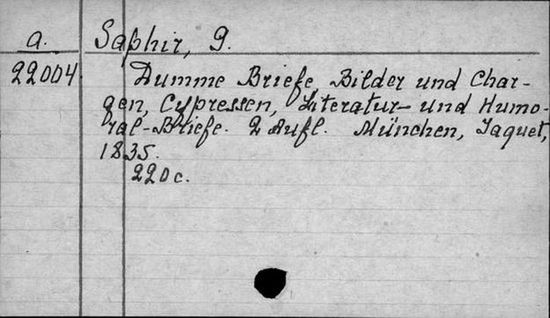 a. Saphir, G.
22004 Dumme Briefe, Bilder und Char-
gen, Cypressen, Literatur- und Humo-
ral-Briefe. 2 Aufl. München, Jaquet,
1835.
220 c.